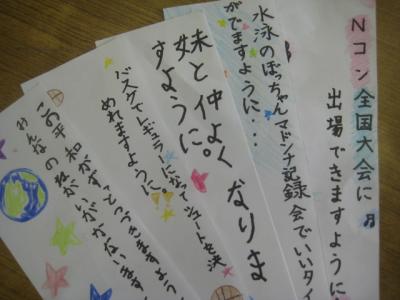 Nコン全国大会に
出場できますように
水泳のぼっちゃんマドンナ記録会でいいタイ
がでますように・・・
妹と仲よくなりま
すように。
バスケでレギュラーになってシュートを決
めれますように
この平和がずっとつづきますよう
みんなのねがいがかないます